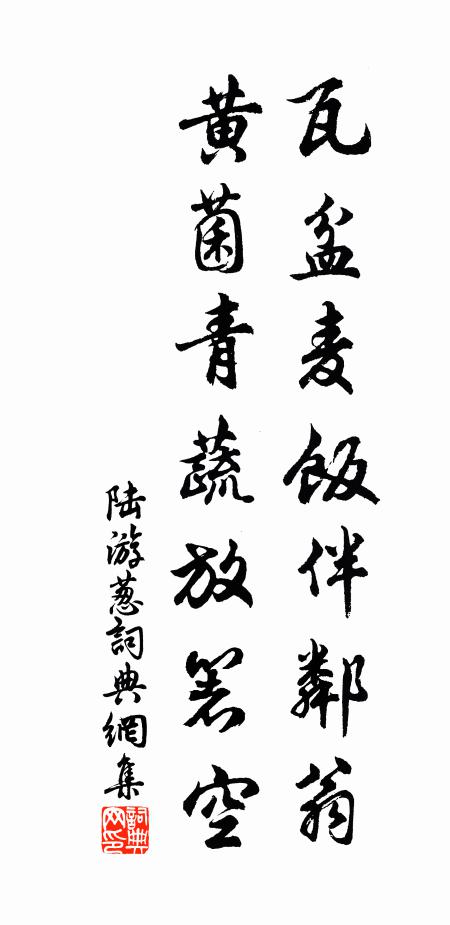 瓦盆麦飯伴鄰翁
黄菌青蔬放箸空
陆游葱詞典網集
詞典网印